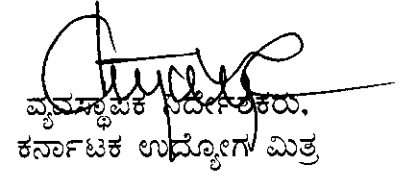 ವ್ಯವಸ್ಥಾಪಕ ನಿರ್ದೇಶಕರು,
ಕರ್ನಾಟಕ ಉದ್ಯೋಗ ಮಿತ್ರ